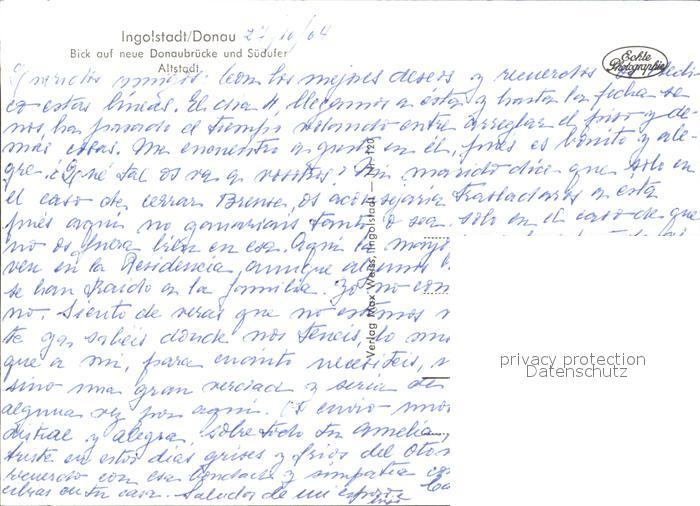 Ingolstadt/Donau 27/10/64
Bick auf neue Donaubrücke und Südufer
Altstadt
Echte Photographie
Queridos amigos: Con los mejores deseos y recuerdos os dedi-
co estas líneas. El día 11 llegamos a ésta y hasta la fecha se
nos ha pasado el tiempo volando entre arreglar el piso y de-
más cosas. Me encuentro a gusto en él, pues es bonito y ale-
gre. ¿Qué tal os va a vosotros? Mi marido dice que solo en
el caso de cerrar Brense, os aconsejaría trasladaros a esta
pués aquí no ganaríais tanto o sea, sólo en el caso de que
no os fuera bien en esa. Aquí la mayo
ven en la Residencia, aunque algunos
se han traído a la familia. Yo no con
no. Siento de veras que no estemos
te ya sabéis donde nos teneis, lo mis
que a mí, para cuanto necesitéis,
sino una gran verdad y sería de
alguna vez por aquí. Os envío
y alegra, sobre todo tu Amelia,
triste en estos días grises y fríos del Oto
recuerdo con esa bondad y simpatía
en tu casa. Saludos de mi esposo
Verlag Max Weiss, Ingolstadt — Nr. 120
privacy protection
Datenschutz